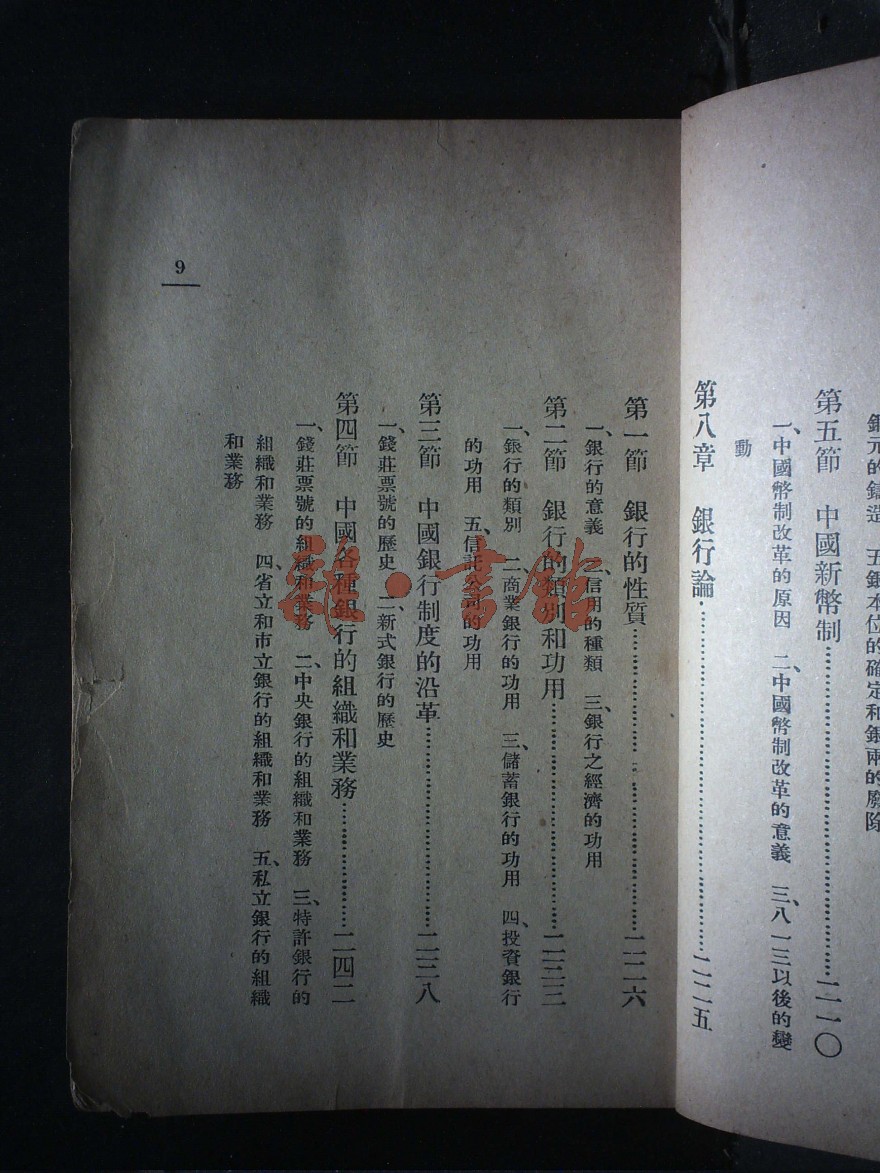 銀元的鑄造　五、銀本位的確定和銀兩的廢除
第五節　中國新幣制……………………二一〇
一、中國幣制改革的原因　二、中國幣制改革的意義　三、八一三以後的變
動
第八章　銀行論……………………二二五
第一節　銀行的性質……………………二二六
一、銀行的意義　二、信用的種類　三、銀行之經濟的功用
第二節　銀行的類別和功用……………………二三三
一、銀行的類別　二、商業銀行的功用　三、儲蓄銀行的功用　四、投資銀行
的功用　五、信託公司的功用
第三節　中國銀行制度的沿革……………………二三八
一、錢莊票號的歷史　二、新式銀行的歷史
第四節　中國各種銀行的組織和業務……………………二四二
一、錢莊票號的組織和業務　二、中央銀行的組織和業務　三、特許銀行的
組織和業務　四、省立和市立銀行的組織和業務　五、私立銀行的組織
和業務
9
雜·書館